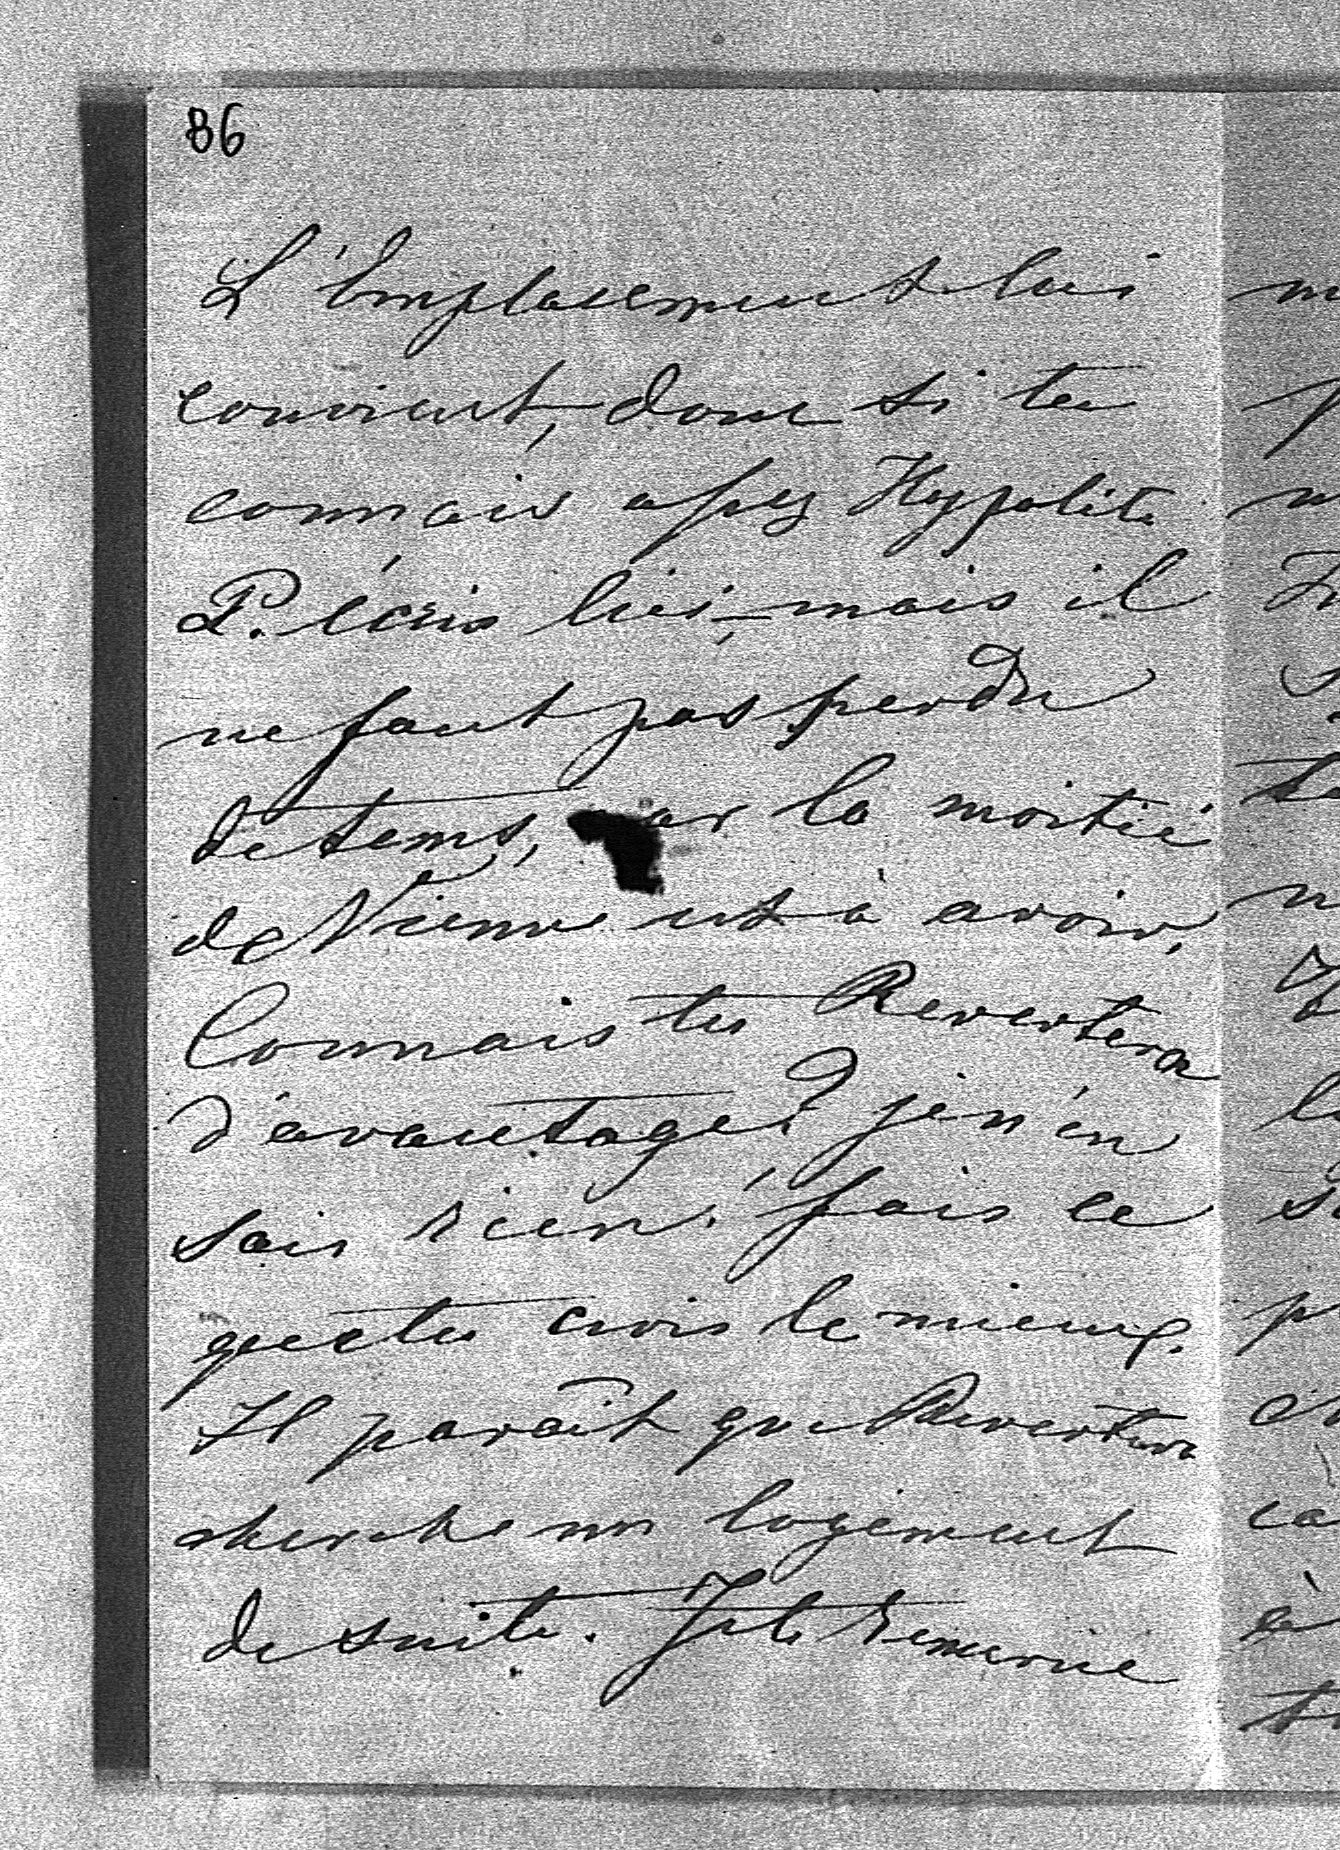 86
L'Emplacement lui
convient, donc si tu
connais assez Hypolite
P. écris lui, mais il
ne faut pas perdre
de tems, car la moitié
de Vienne est à avoir,
Connais tu Revertera
d'avantage? je n'en
sais rien! fais ce
que tu crois le mieux.
Il paraît que Revertera
cherche un logement
de suite. Je te remercie